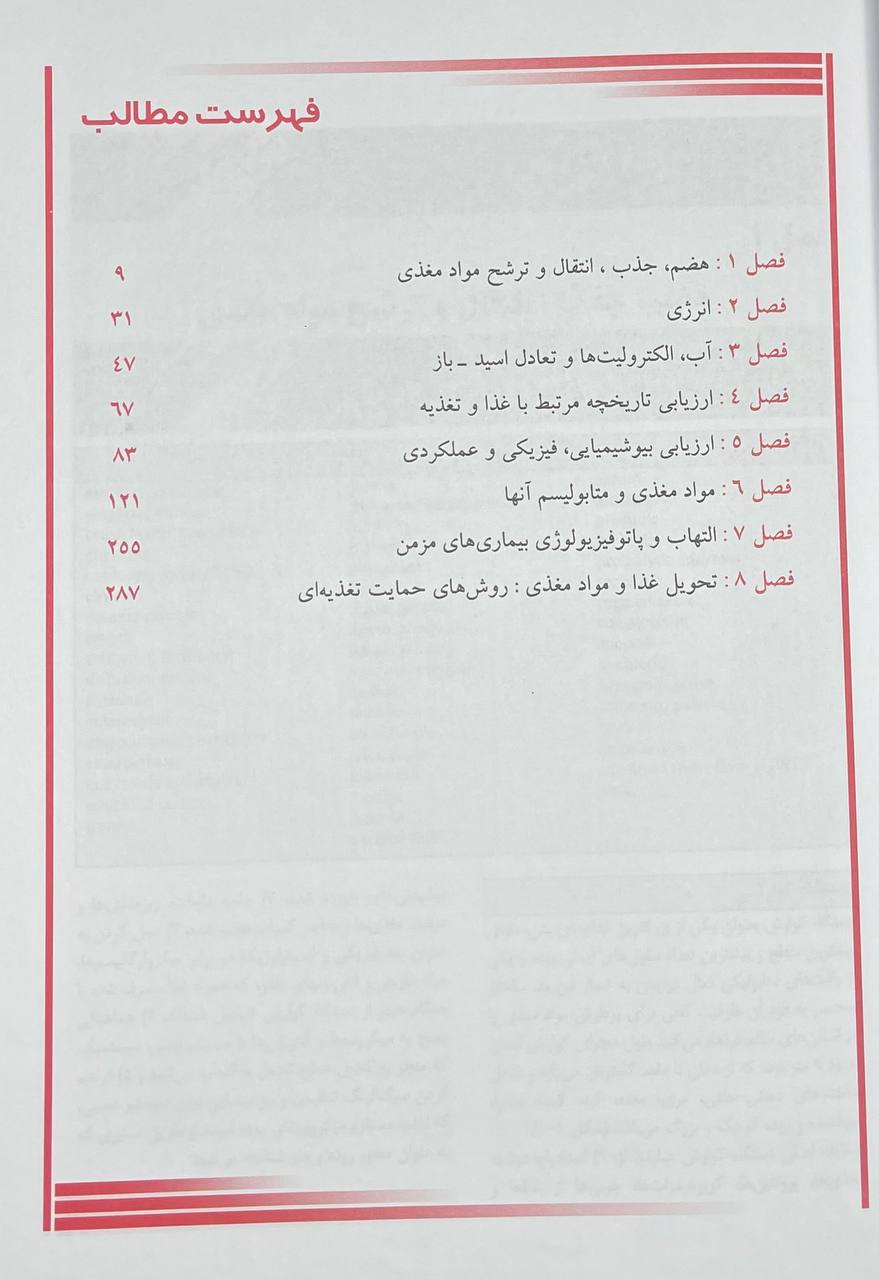 فهرست مطالب
فصل ۱ : هضم، جذب ، انتقال و ترشح مواد مغذی ۹
فصل ۲ : انرژی ۳۱
فصل ۳ : آب، الکترولیت‌ها و تعادل اسید ـ باز ٤۷
فصل ٤ : ارزیابی تاریخچه مرتبط با غذا و تغذیه ٦۷
فصل ٥ : ارزیابی بیوشیمیایی، فیزیکی و عملکردی ۸۳
فصل ٦ : مواد مغذی و متابولیسم آنها ۱۲۱
فصل ۷ : التهاب و پاتوفیزیولوژی بیماری‌های مزمن ۲٥٥
فصل ۸ : تحویل غذا و مواد مغذی : روش‌های حمایت تغذیه‌ای ۲۸۷